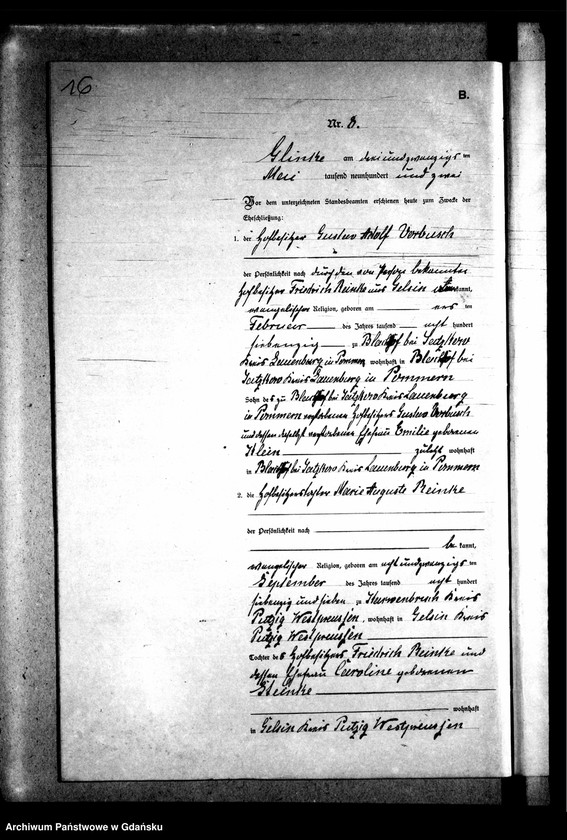 16
B.
Nr. 8.
Glinke am drei und zwanzigsten
Mai tausend neunhundert und zwei
Vor dem unterzeichneten Standesbeamten erschienen heute zum Zwecke der
Eheschließung:
1. der Hofbesitzer Gustav Adolf Vorbusch
der Persönlichkeit nach durch den von Person bekannten
Hofbesitzer Friedrich Reinke aus Gelsin kannt,
evangelischer Religion, geboren am ten
Februar des Jahres tausend acht hundert
siebenzig zu bei
Kreis Lauenburg in Pommern wohnhaft in bei
Kreis Lauenburg in Pommern
Sohn des zu bei Kreis Lauenburg
in Pommern verstorbenen Hofbesitzers Gustav Vorbusch
und dessen daselbst verstorbenen Ehefrau Emilie geborenen
Klein zuletzt wohnhaft
in bei Kreis Lauenburg in Pommern
2. die Hofbesitzerstochter Marie Auguste Reinke
der Persönlichkeit nach
be kannt,
evangelischer Religion, geboren am acht und zwanzigsten
September des Jahres tausend acht hundert
siebenzig und sieben zu Kreis
Putzig Westpreussen, wohnhaft in Gelsin Kreis
Putzig Westpreussen
Tochter des Hofbesitzers Friedrich Reinke und
dessen Ehefrau Caroline geborenen
Steinke
wohnhaft
in Gelsin Kreis Putzig Westpreussen
Archiwum Państwowe w Gdańsku